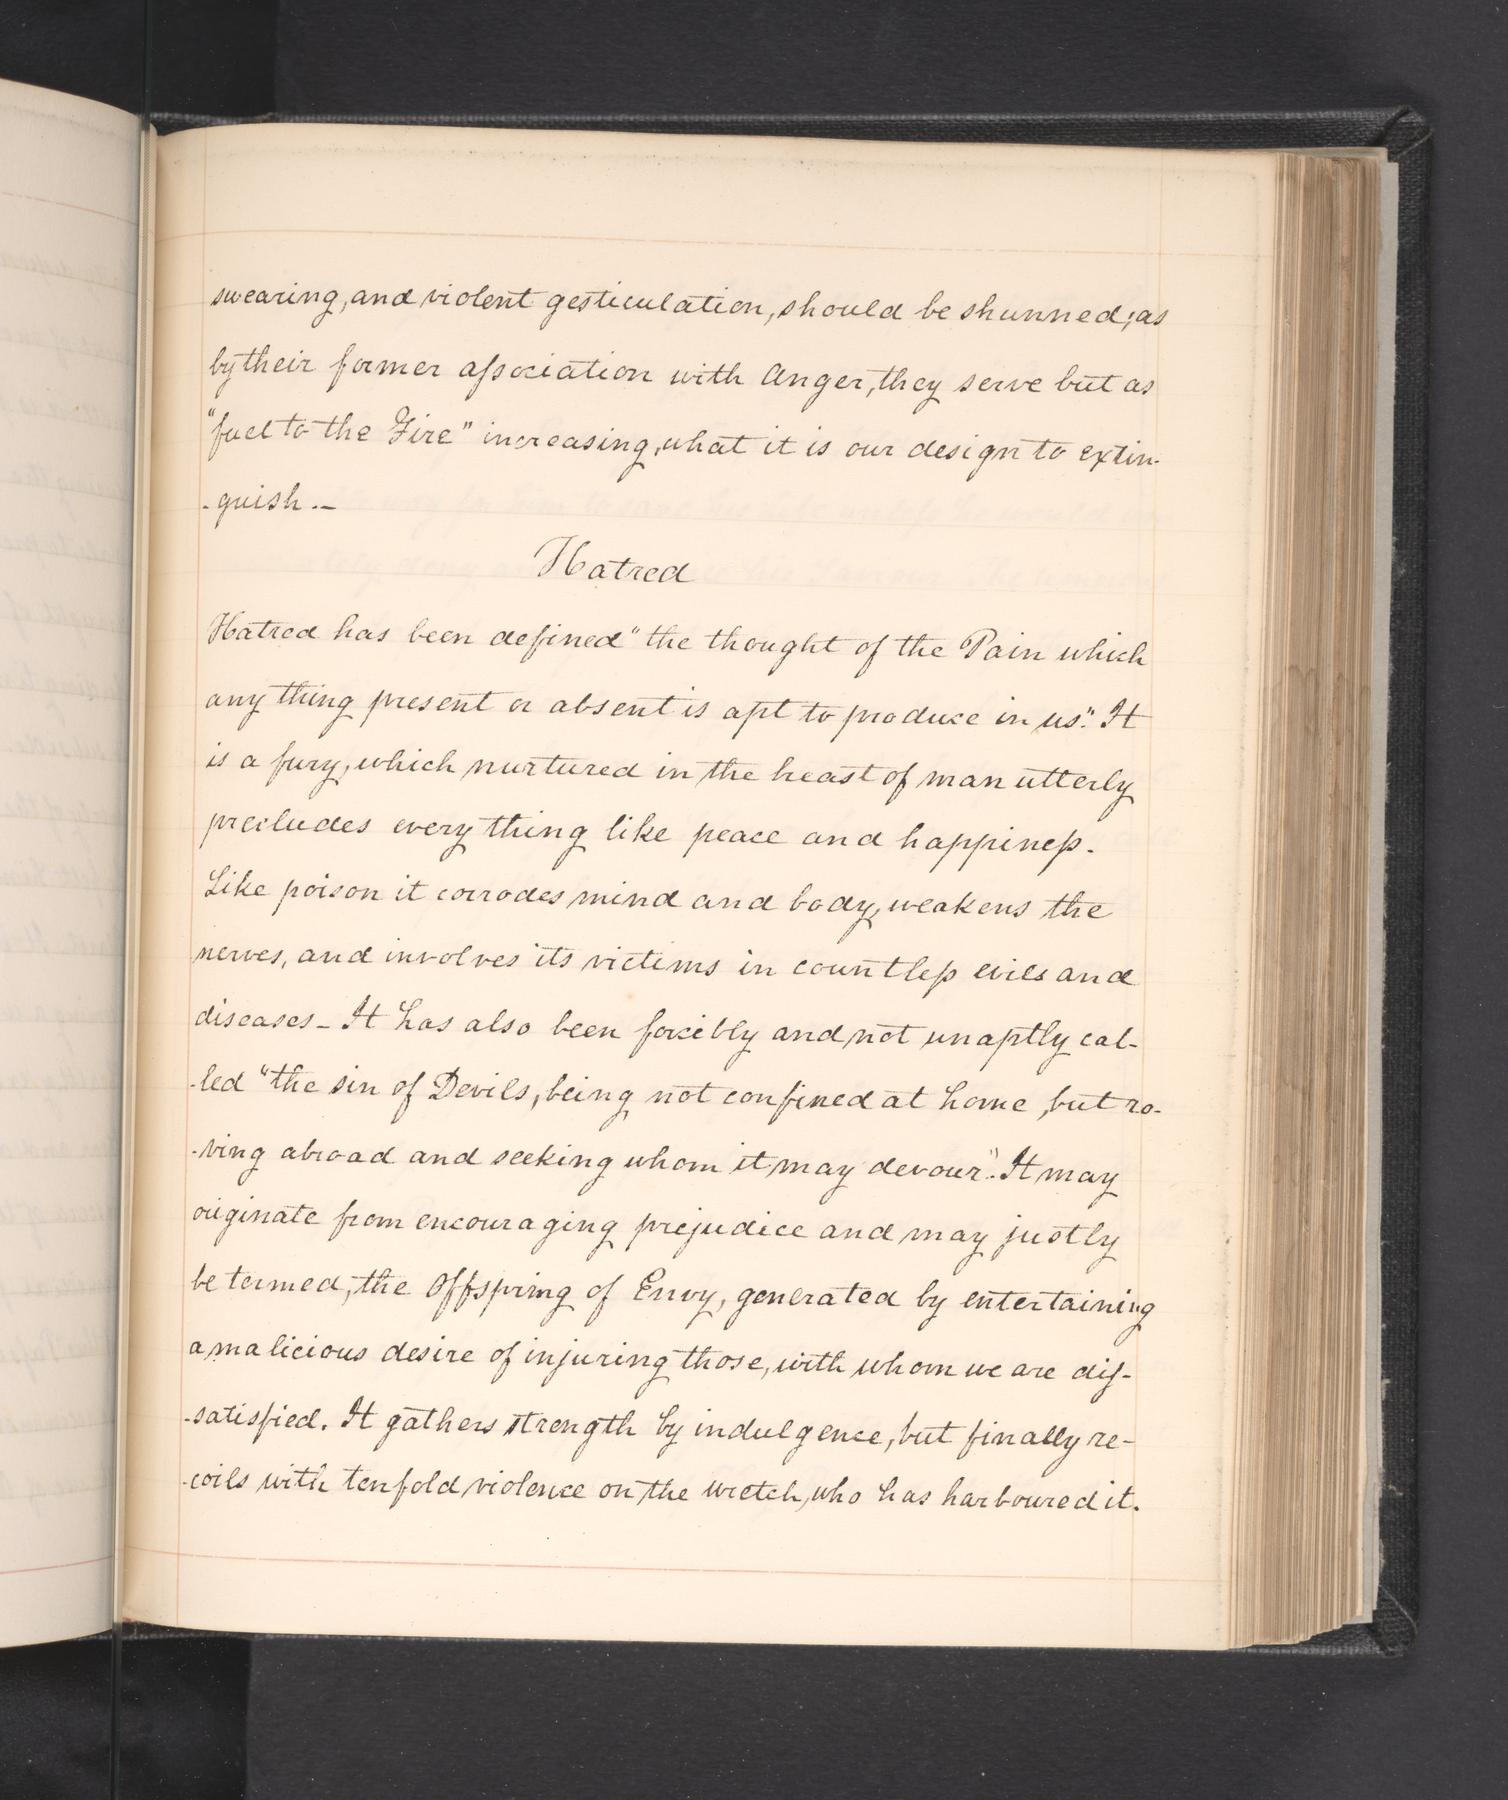 swearing, and violent gesticulation, should be shunned; as
by their former aſsociation with Anger, they serve but as
"fuel to the Fire" increasing, what it is our design to extin-
-guish.—
Hatred
Hatred has been defined "the thought of the Pain which
any thing present or absent is apt to produce in us". It
is a fury, which nurtured in the breast of man utterly
precludes every thing like peace and happineſs.
Like poison it corrodes mind and body, weakens the
nerves, and involves its victims in countleſs evils and
diseases — It has also been forcibly and not unaptly cal-
-led "the sin of Devils, being not confined at home, but ro-
-ving abroad and seeking whom it may devour". It may
originate from encouraging prejudice and may justly
be termed, the Offspring of Envy, generated by entertaining
a malicious desire of injuring those, with whom we are diſ-
-satisfied. It gathers strength by indulgence, but finally re-
-coils with tenfold violence on the wretch, who has harboured it.